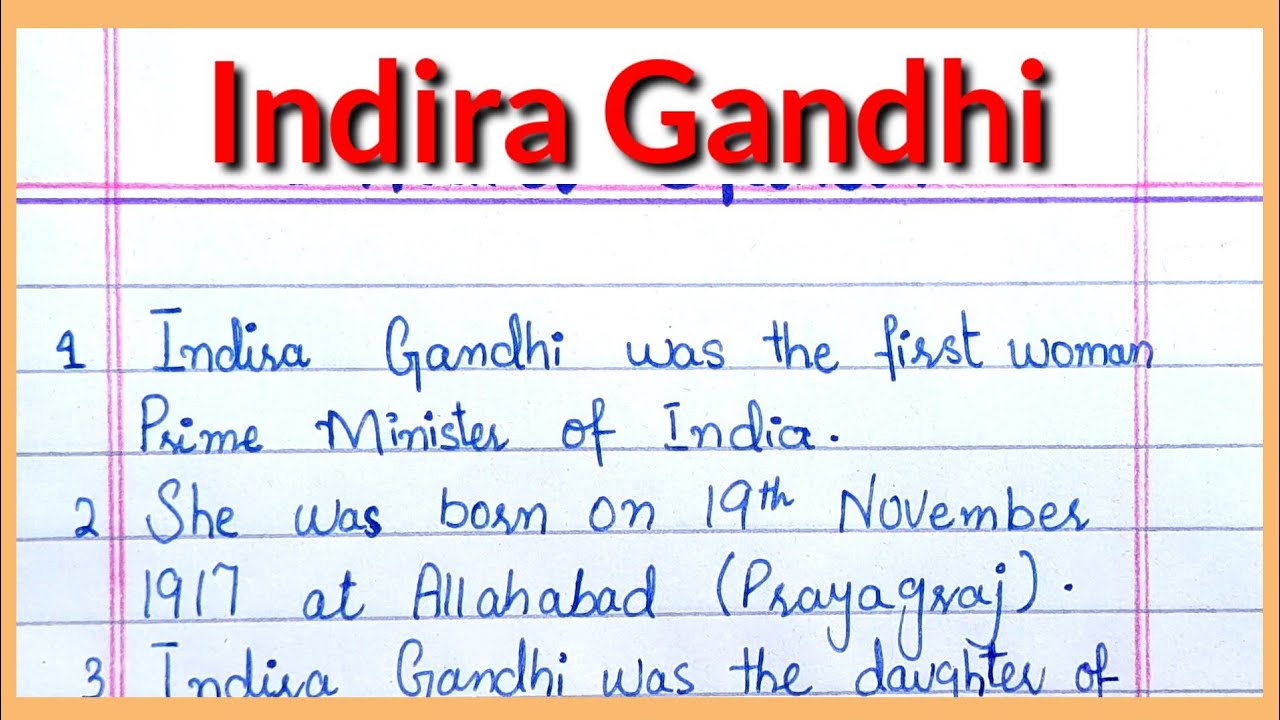 Indira Gandhi
1 Indira Gandhi was the first woman
Prime Minister of India.
2 She was born on 19th November
1917 at Allahabad (Prayagraj).
3 Indira Gandhi was the daughter of